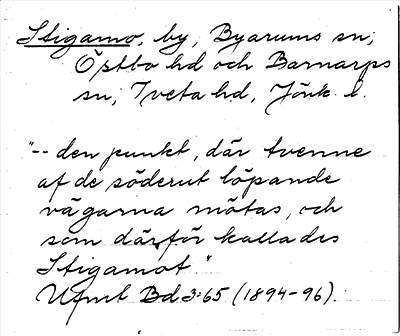 Stigamo, by, Byarums sn,
Östbo hd och Barnarps
sn, Tveta hd, Jönk. l.
"-- den punkt, där tvenne
af de söderut löpande
vägarna mötas, och
som därför kallades
Stigamot."
Ufmt Bd 3:65 (1894-96).